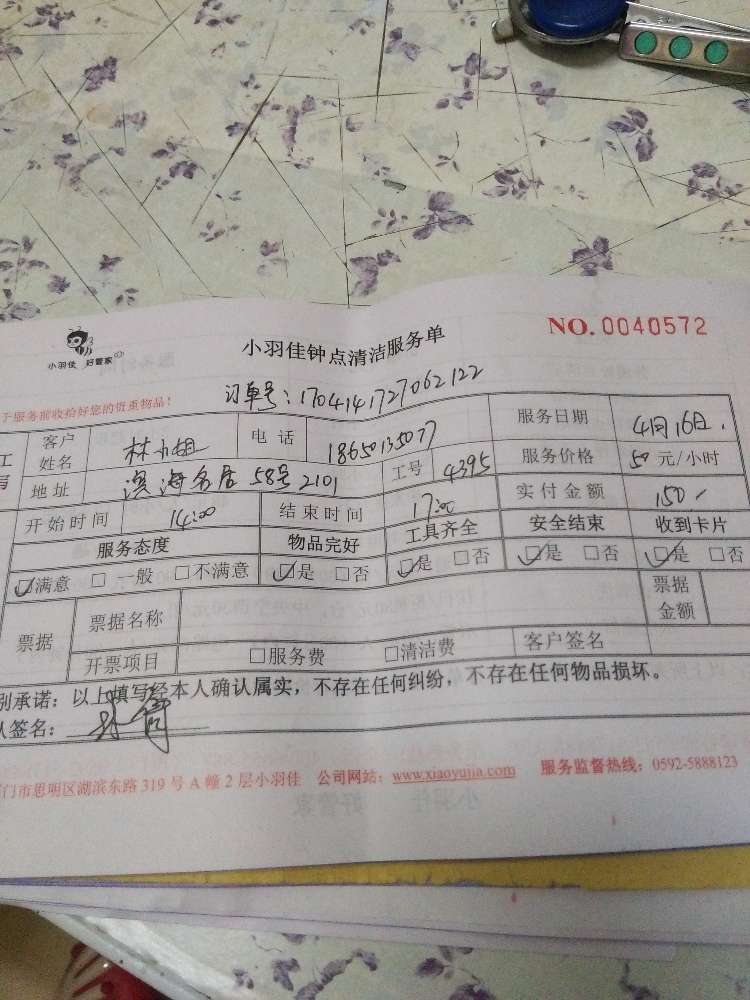 NO.0040572
小羽佳 好管家
小羽佳钟点清洁服务单
于服务前收拾好您的贵重物品!
订单号:1704141727062122
工 客户姓名 林小姐 电话 18650135077 服务日期 4月16日.
地址 滨海名居58号2101 工号 4395 服务价格 50 元/小时
开始时间 14:00 结束时间 17:00 实付金额 150
服务态度 物品完好 工具齐全 安全结束 收到卡片
☑满意 □一般 □不满意 ☑是 □否 ☑是 □否 ☑是 □否 ☑是 □否
票据 票据名称 票据金额
开票项目 □服务费 □清洁费 客户签名
别承诺:以上填写经本人确认属实,不存在任何纠纷,不存在任何物品损坏。
人签名:
门市思明区湖滨东路319号A幢2层小羽佳 公司网站:www.xiaoyujia.com 服务监督热线:0592-5888123